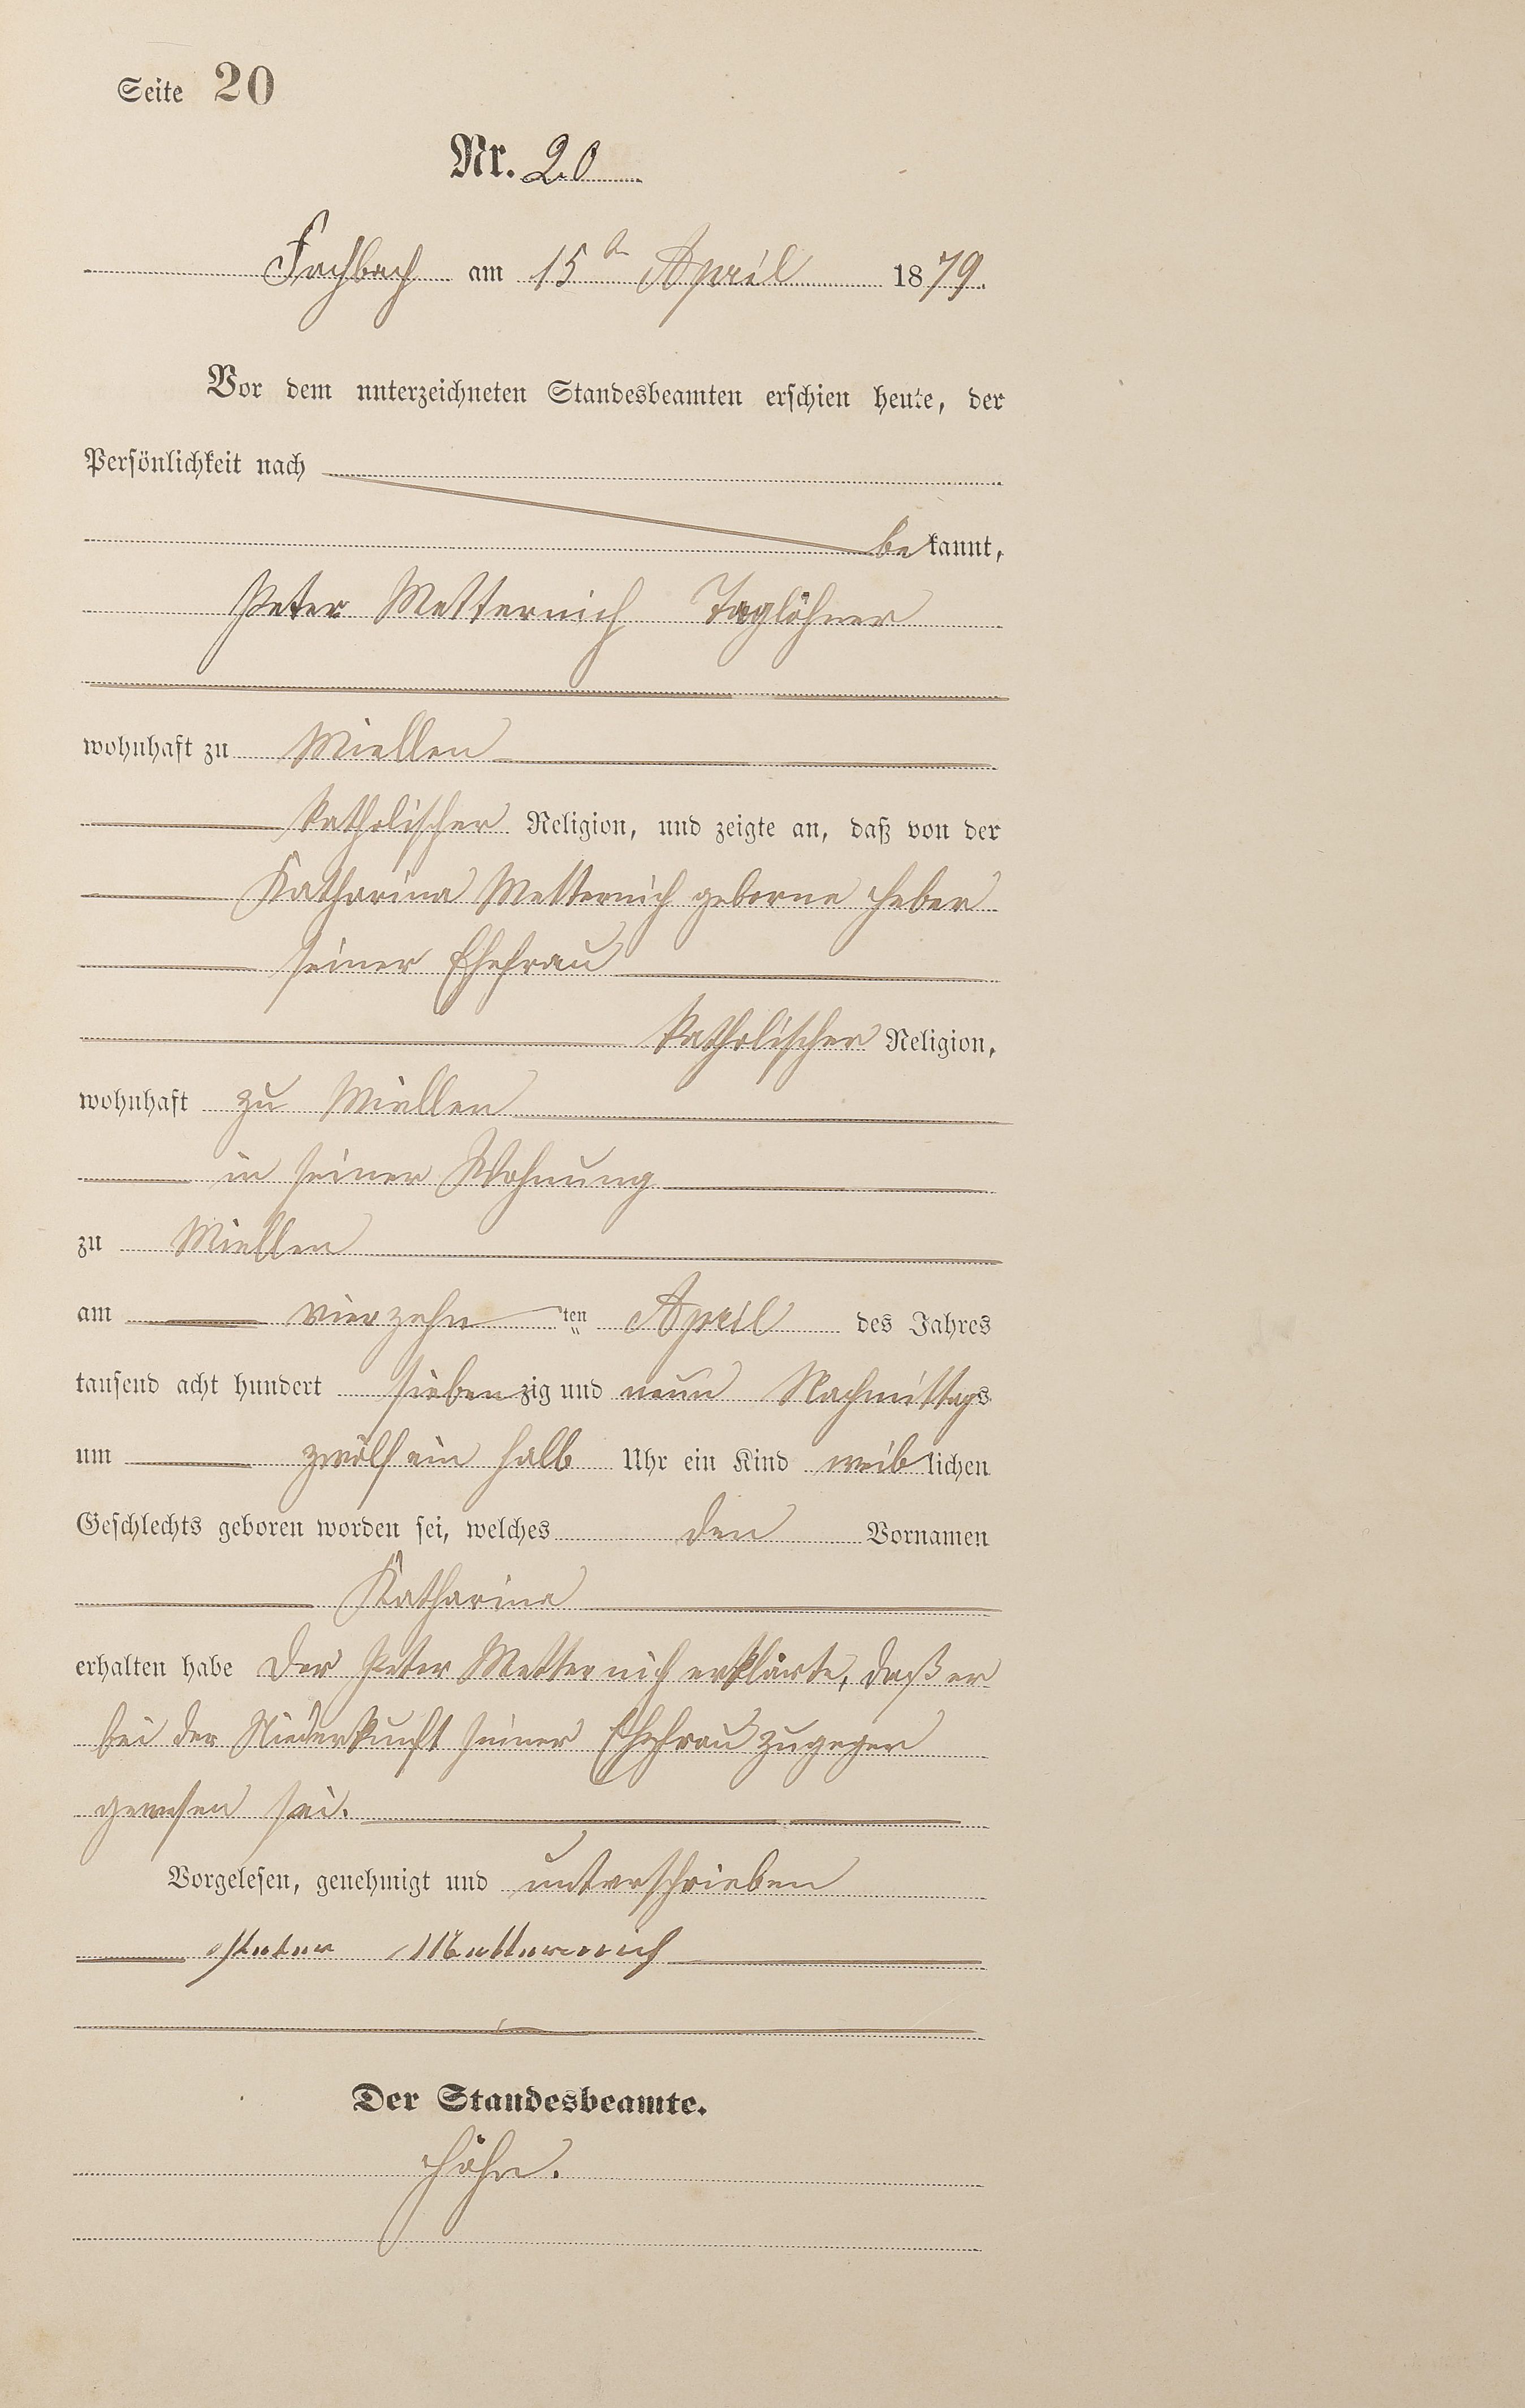 Seite 20
Nr. 20
Fachbach am 15ᵗ April 1879.
Vor dem unterzeichneten Standesbeamten erschien heute, der
Persönlichkeit nach
bekannt,
Peter Metternich Taglöhner
wohnhaft zu Miellen
katholischer Religion, und zeigte an, daß von der
Katharina Metternich geborne Heber
seiner Ehefrau
katholischer Religion,
wohnhaft zu Miellen
in seiner Wohnung
zu Miellen
am vierzehnten April des Jahres
tausend acht hundert siebenzig und neun Nachmittags
um zwölf ein halb Uhr ein Kind weiblichen
Geschlechts geboren worden sei, welches den Vornamen
Katharina
erhalten habe Der Peter Metternich erklärte, daß er
bei der Niederkunft seiner Ehefrau zugegen
gewesen sei.
Vorgelesen, genehmigt und unterschrieben
Peter Metternich
Der Standesbeamte.
Höhn.